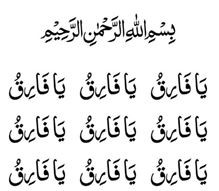 بِسْمِ اللهِ الرَّحْمٰنِ الرَّحِيْمِ
يَا فَارِقُ يَا فَارِقُ يَا فَارِقُ
يَا فَارِقُ يَا فَارِقُ يَا فَارِقُ
يَا فَارِقُ يَا فَارِقُ يَا فَارِقُ